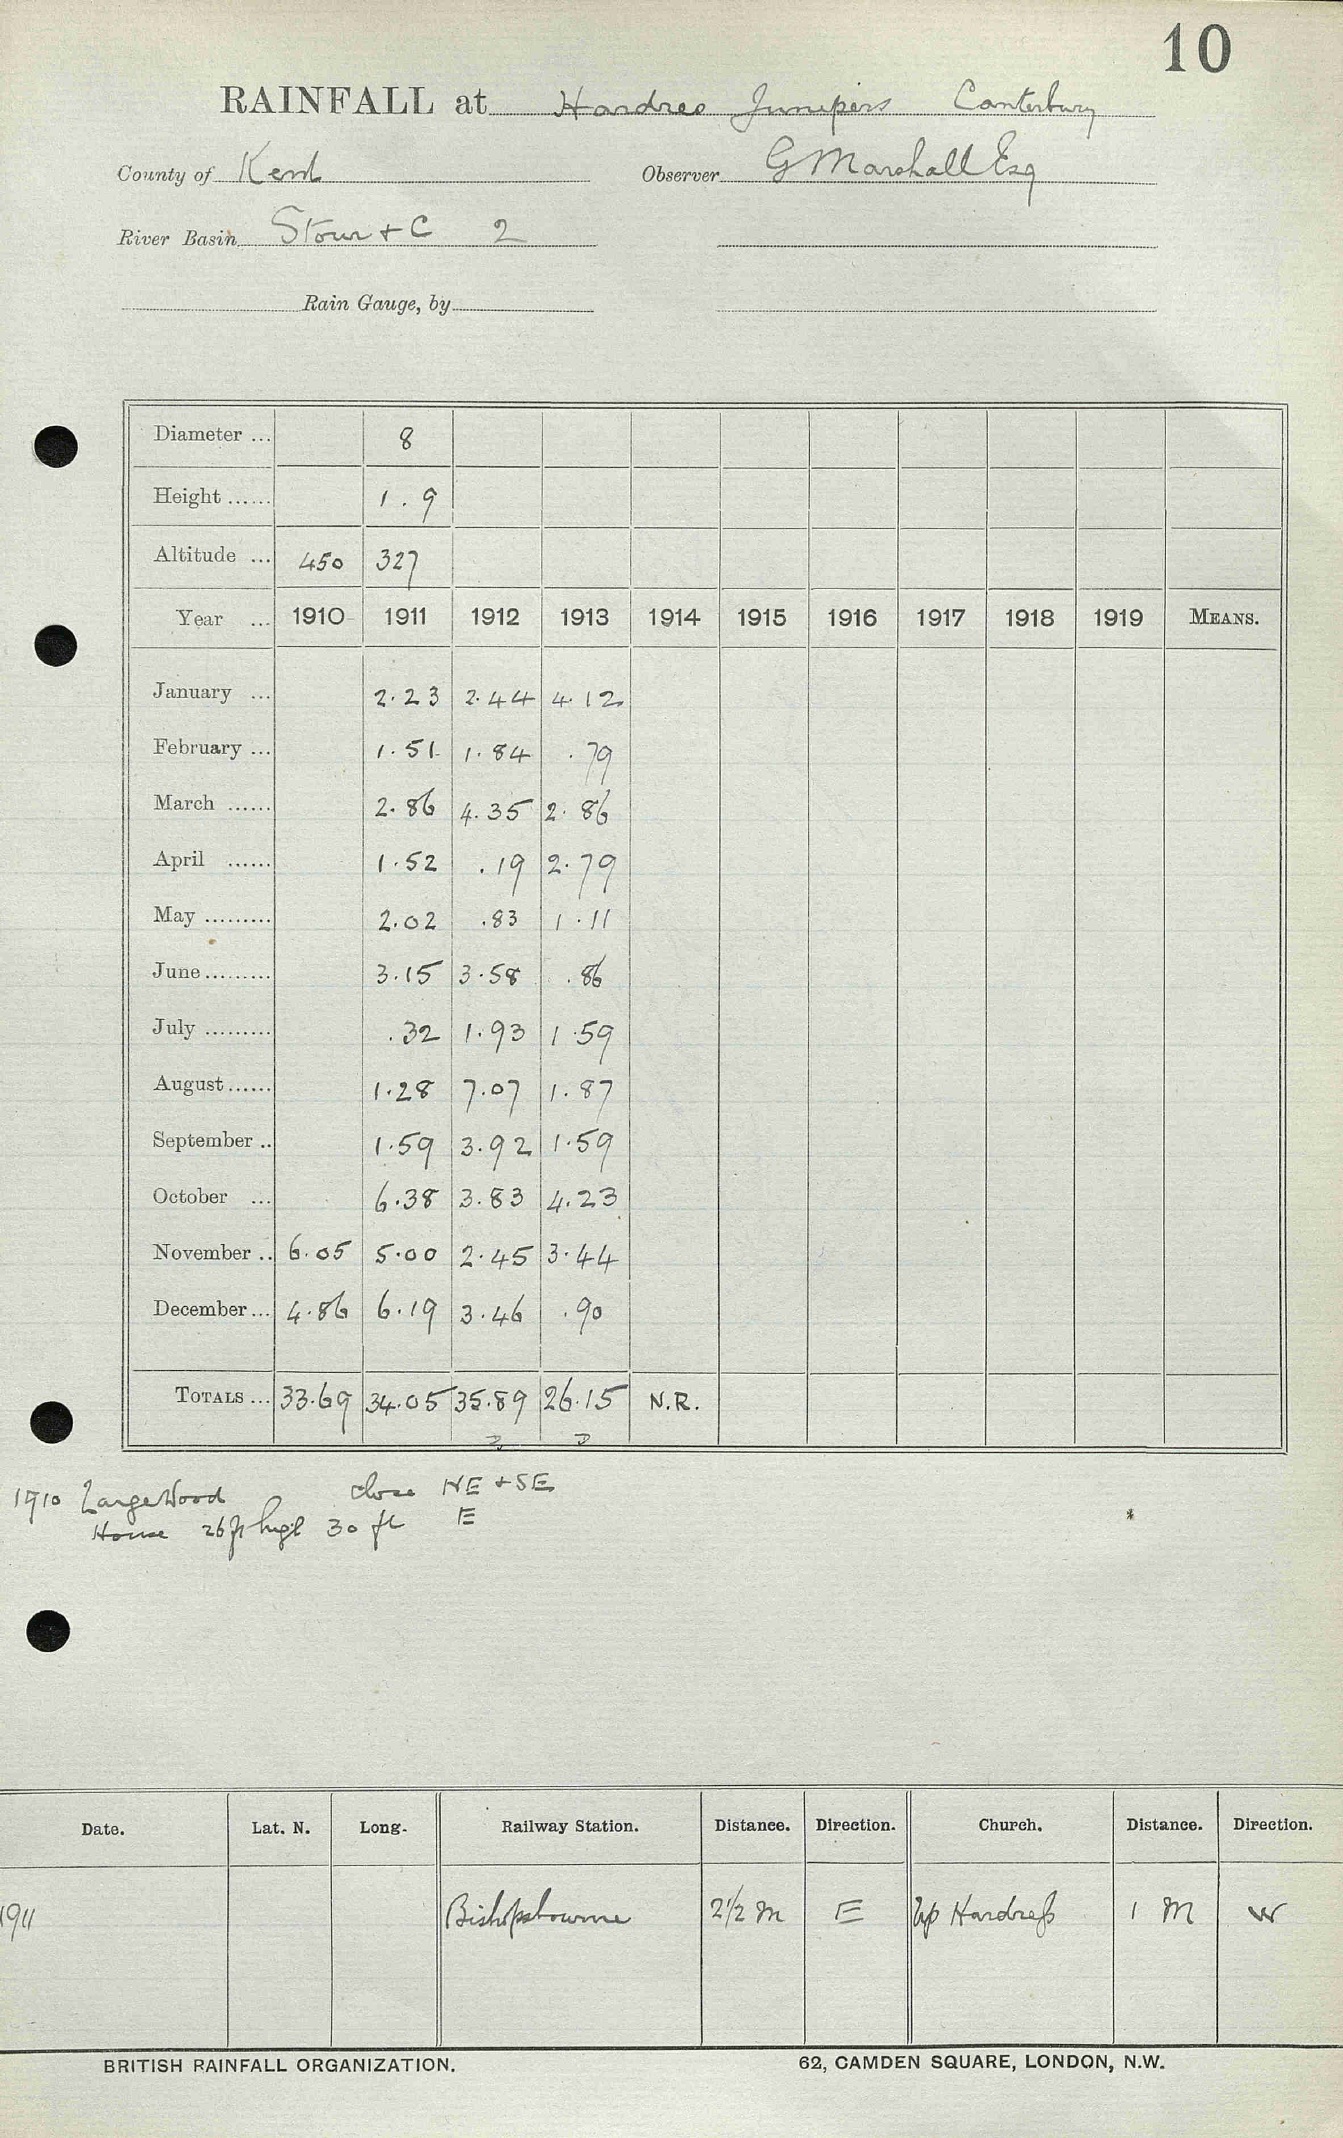 10
RAINFALL at Hardres Junipers Canterbury
County of Kent Observer G Marshall Esq
River Basin Stour + C 2
Rain Gauge, by
Diameter ... 8
Height ...... 1.9
Altitude ... 450 327
Year ... 1910 1911 1912 1913 1914 1915 1916 1917 1918 1919 MEANS.
January ... 2.23 2.44 4.12
February ... 1.51 1.84 .79
March ...... 2.86 4.35 2.86
April ...... 1.52 .19 2.79
May ......... 2.02 .83 1.11
June ......... 3.15 3.58 .86
July ......... .32 1.93 1.59
August ...... 1.28 7.07 1.87
September .. 1.59 3.92 1.59
October ... 6.38 3.83 4.23
November .. 6.05 5.00 2.45 3.44
December ... 4.86 6.19 3.46 .90
TOTALS ... 33.69 34.05 35.89 26.15 N.R.
1910 Large Wood close NE + SE
House 26 ft high 30 ft E
Date. Lat. N. Long. Railway Station. Distance. Direction. Church. Distance. Direction.
1911 Bishopsbourne 2½ M E Up Hardress 1 M W
BRITISH RAINFALL ORGANIZATION. 62, CAMDEN SQUARE, LONDON, N.W.